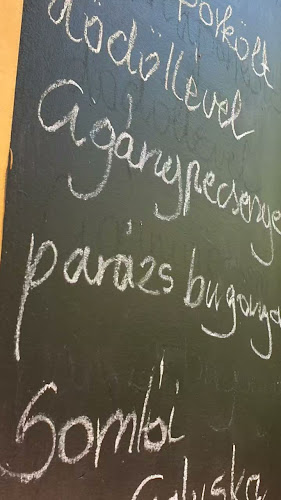 pörkölt
dödöllével
Cigánypecsenye
parázs burgonya
Somlói
Galuska